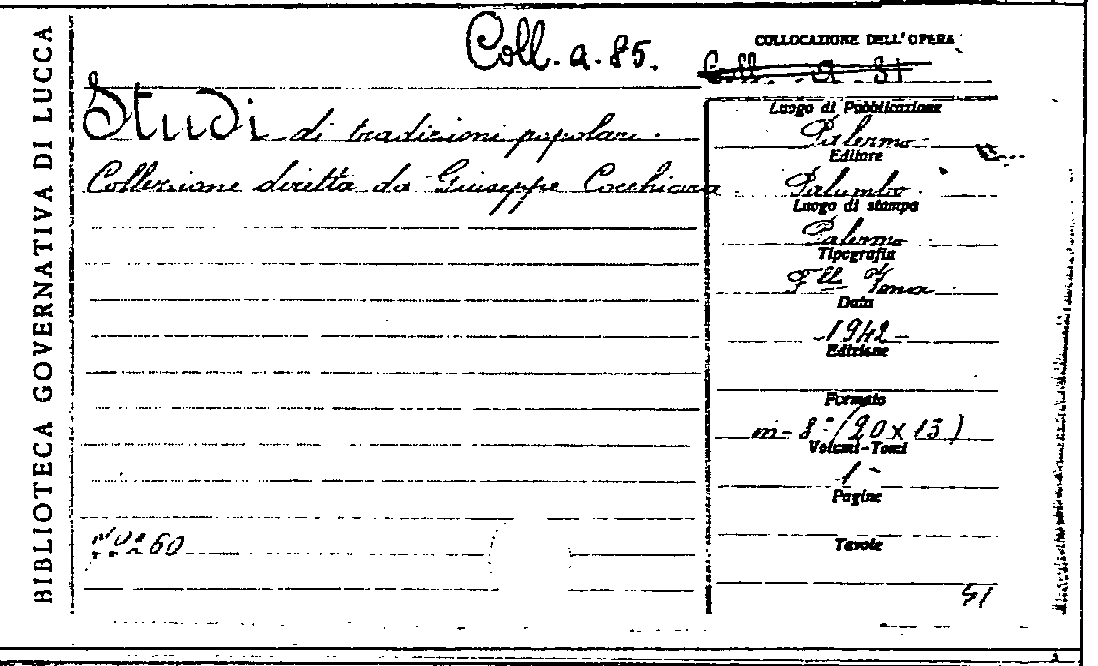 BIBLIOTECA GOVERNATIVA DI LUCCA
Coll. a. 85.
COLLOCAZIONE DELL'OPERA
Coll. a. 31
Studi di tradizioni popolari.
Collezione diretta da Giuseppe Cocchiara.
Luogo di Pubblicazione
Palermo
Editore
Palumbo
Luogo di stampa
Palermo
Tipografia
F.lli
Data
1942
Edizione
Formato
in-8° (20x13)
Volumi-Tomi
1
Pagine
Tavole
60